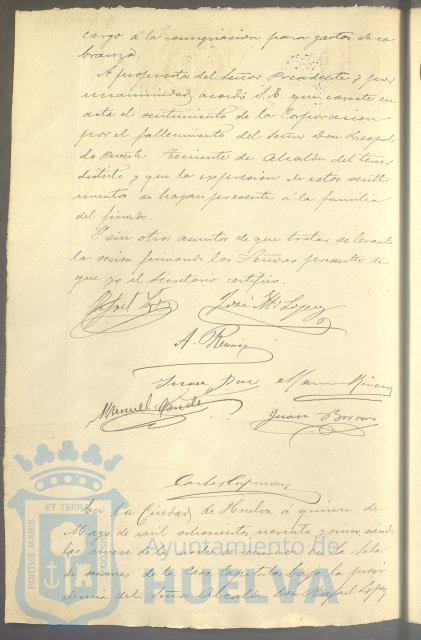 cargo á la consignacion para gastos de co
branza.
A propuesta del Señor Presidente y por
unanimidad acordó S.E. que conste en
acta el sentimiento de la Corporacion
por el fallecimiento del Señor Don Leopol
do Teniente de Alcalde del tercer
distrito y que la expresion de estos senti
mientos se haga presente á la familia
del finado.
Y sin otros asuntos de que tratar se levantó
la sesion firmando los Señores presentes de
que yo el Secretario certifico.
José Mª Lopez
A.
Manuel Conde
Juan
En la Ciudad de Huelva á quince de
Mayo de mil ochocientos noventa y cinco, siendo
las nueve de la noche se reunieron en la Sala
de sesiones de la Casa Capitular bajo la presi
dencia del Señor Alcalde Don Rafael Lopez
PORTUS MARIS
ET TERRAE
CUSTODIA
Ayuntamiento de
HUELVA